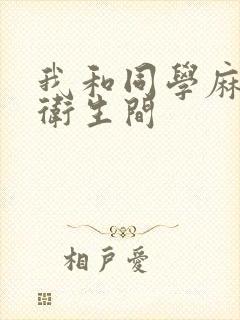 我和同學麻
衛生間
相戶愛